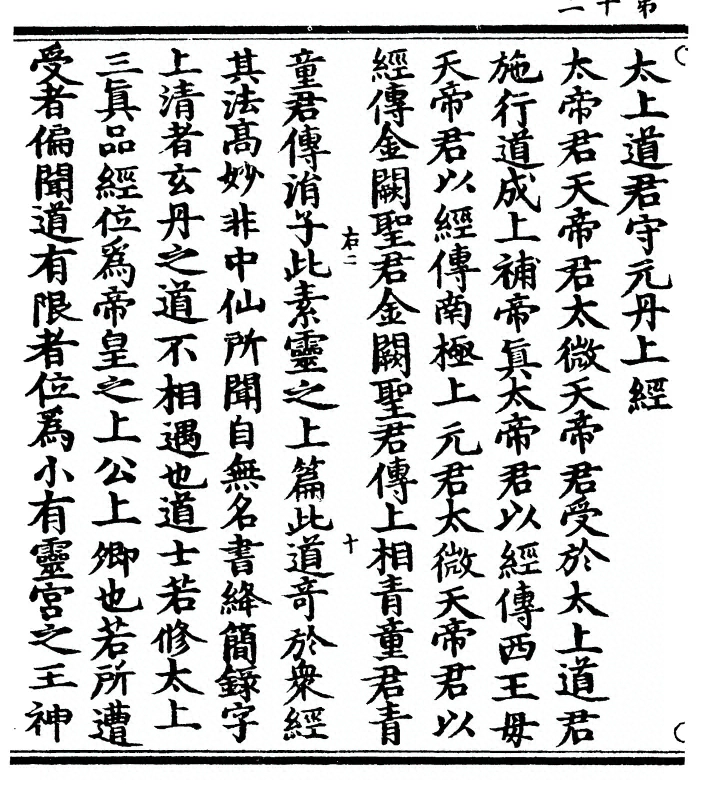 第十二
太上道君守元丹上經
太帝君天帝君太微天帝君受於太上道君
施行道成上補帝眞太帝君以經傳西王母
天帝君以經傳南極上元君太微天帝君以
經傳金闕聖君金闕聖君傳上相青童君青
右二
十
童君傳涓子此素靈之上篇此道奇於衆經
其法高妙非中仙所聞自無名書絳簡錄字
上清者玄丹之道不相遇也道士若修太上
三眞品經位爲帝皇之上公上卿也若所遭
受者偏聞道有限者位爲小有靈宮之王神